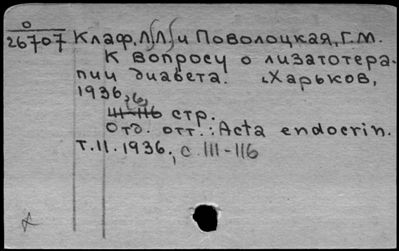 О
26707 Клаф, Л.Л. и Поволоцкая, Г.М.
К вопросу о лизатотера-
пии диабета. Харьков,
1936.
(6)
111-116 стр.
Отд. отт.: Acta endocrin.
т.II. 1936., с. 111-116